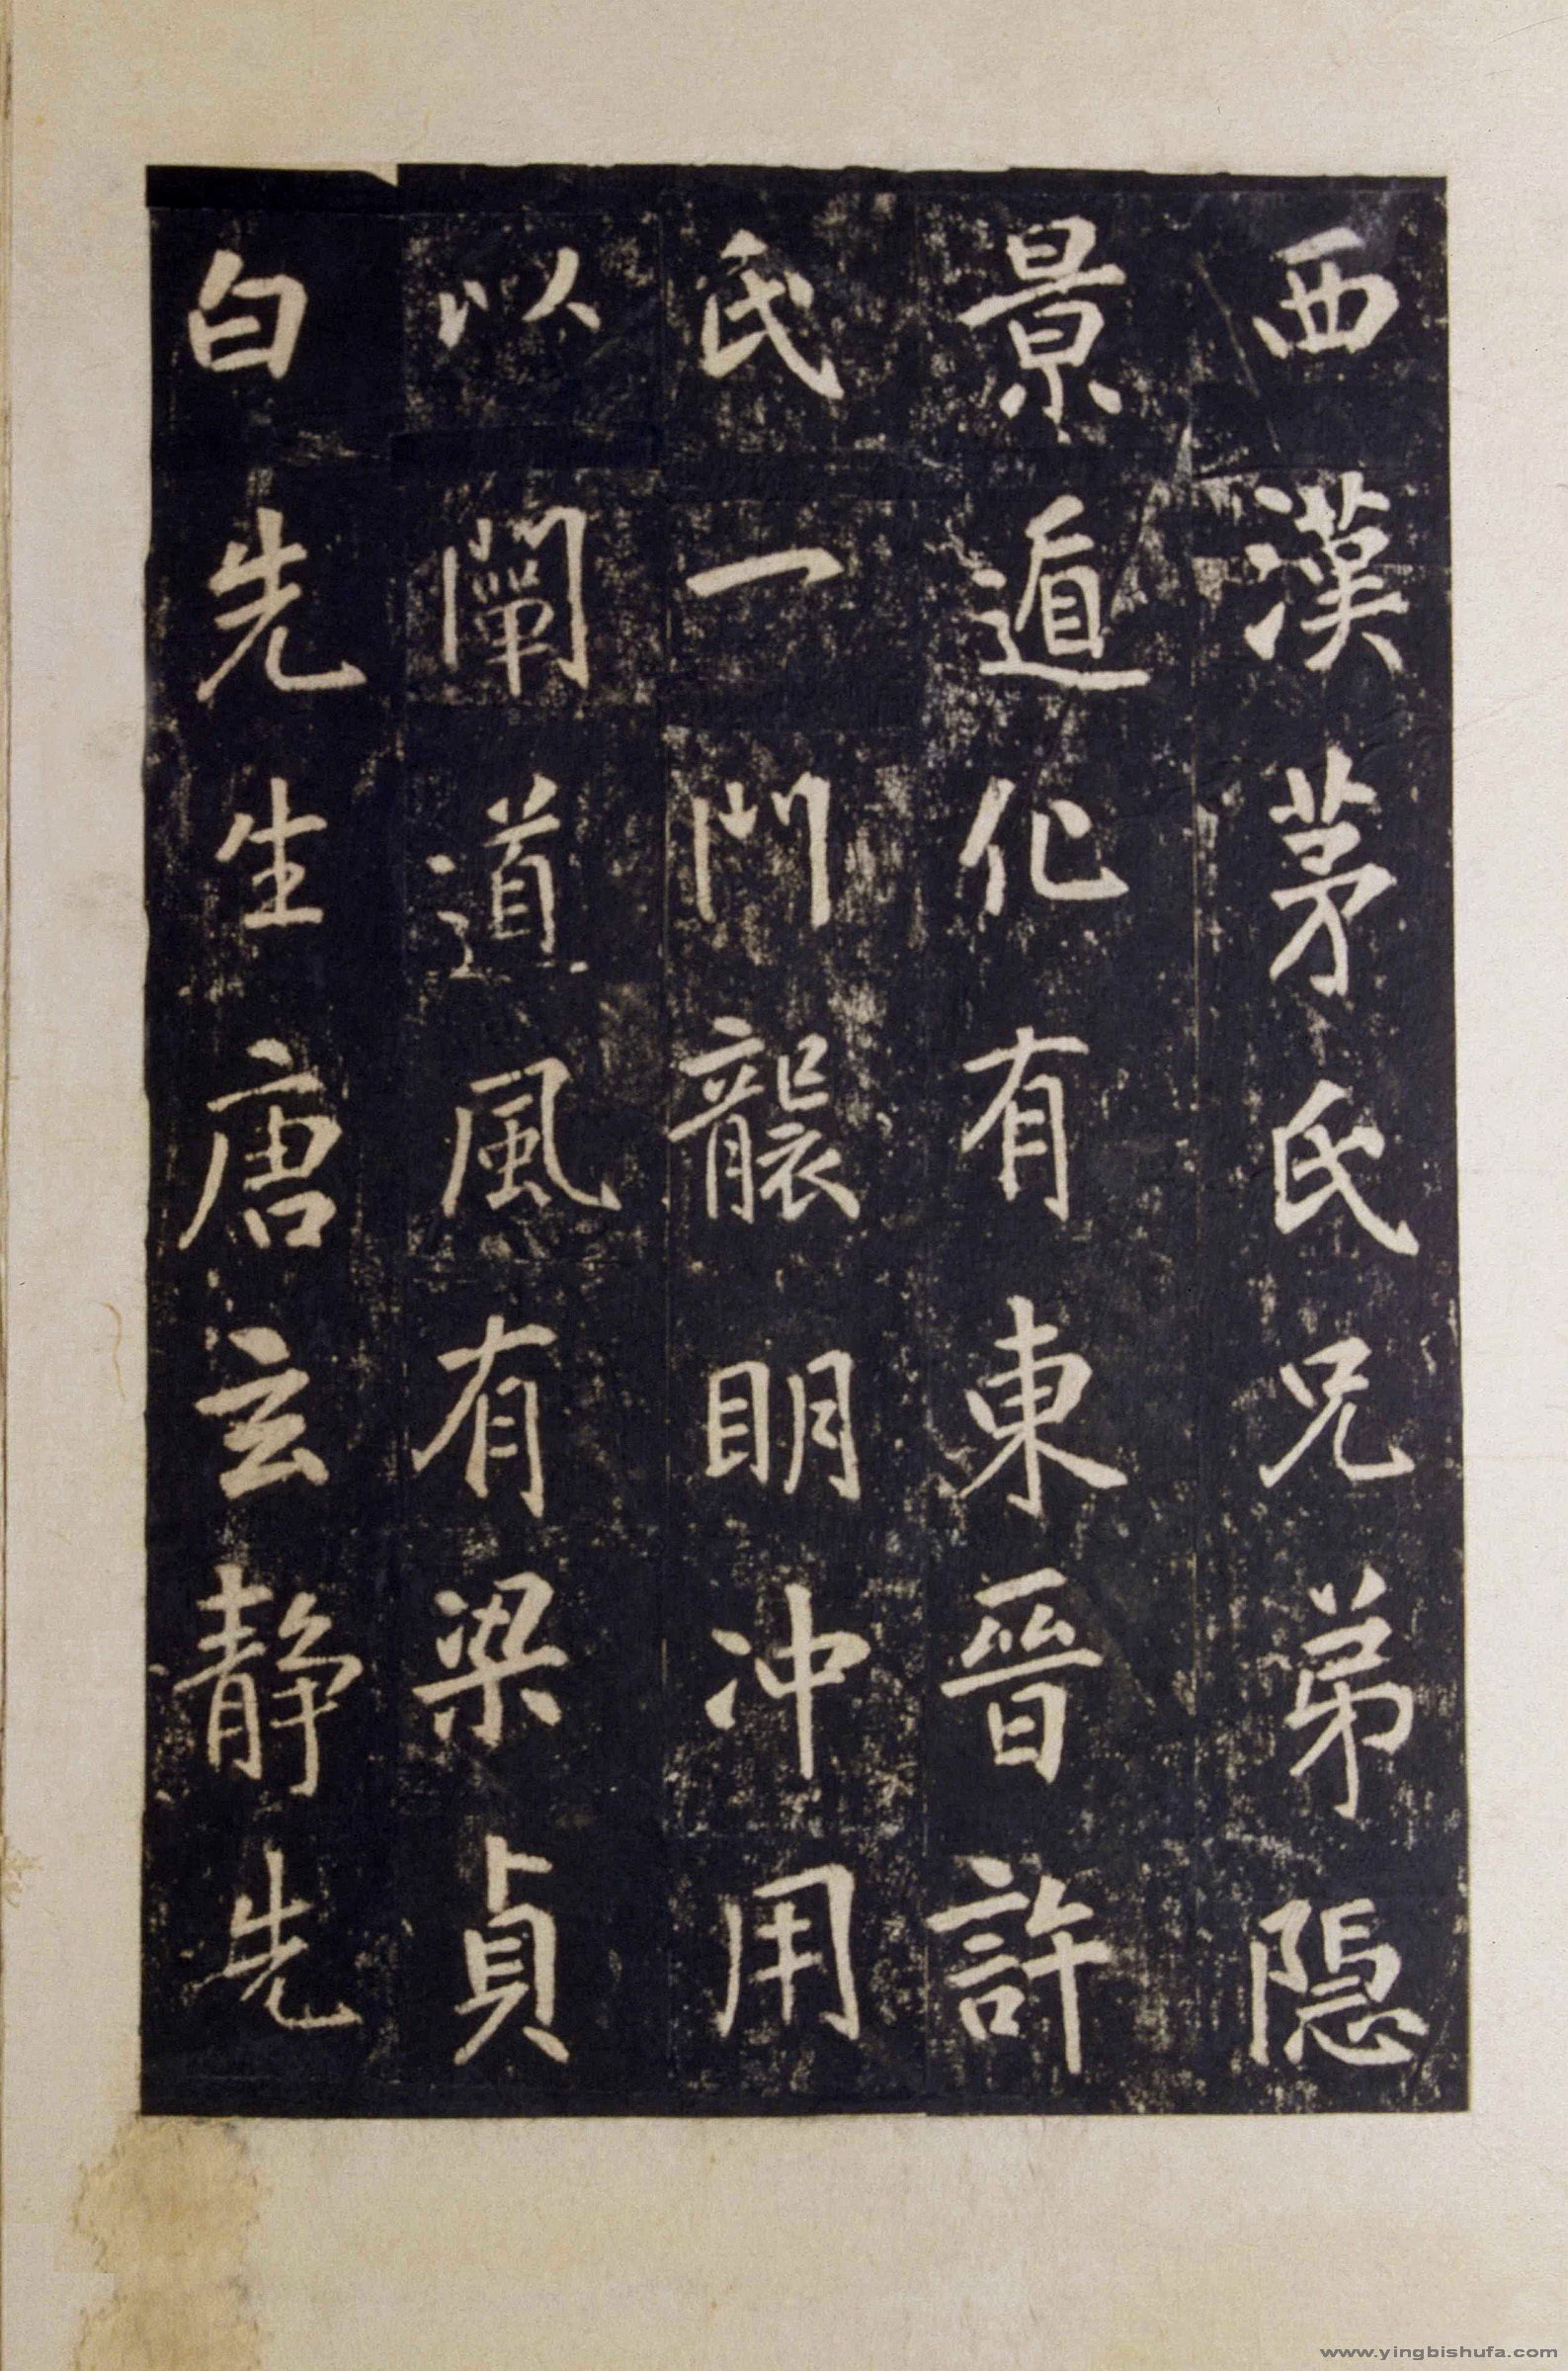 西漢茅氏兄弟隱
景遁化有東晉許
氏一門襲明沖用
以闡道風有梁貞
白先生唐玄靜先
www.yingbishufa.com